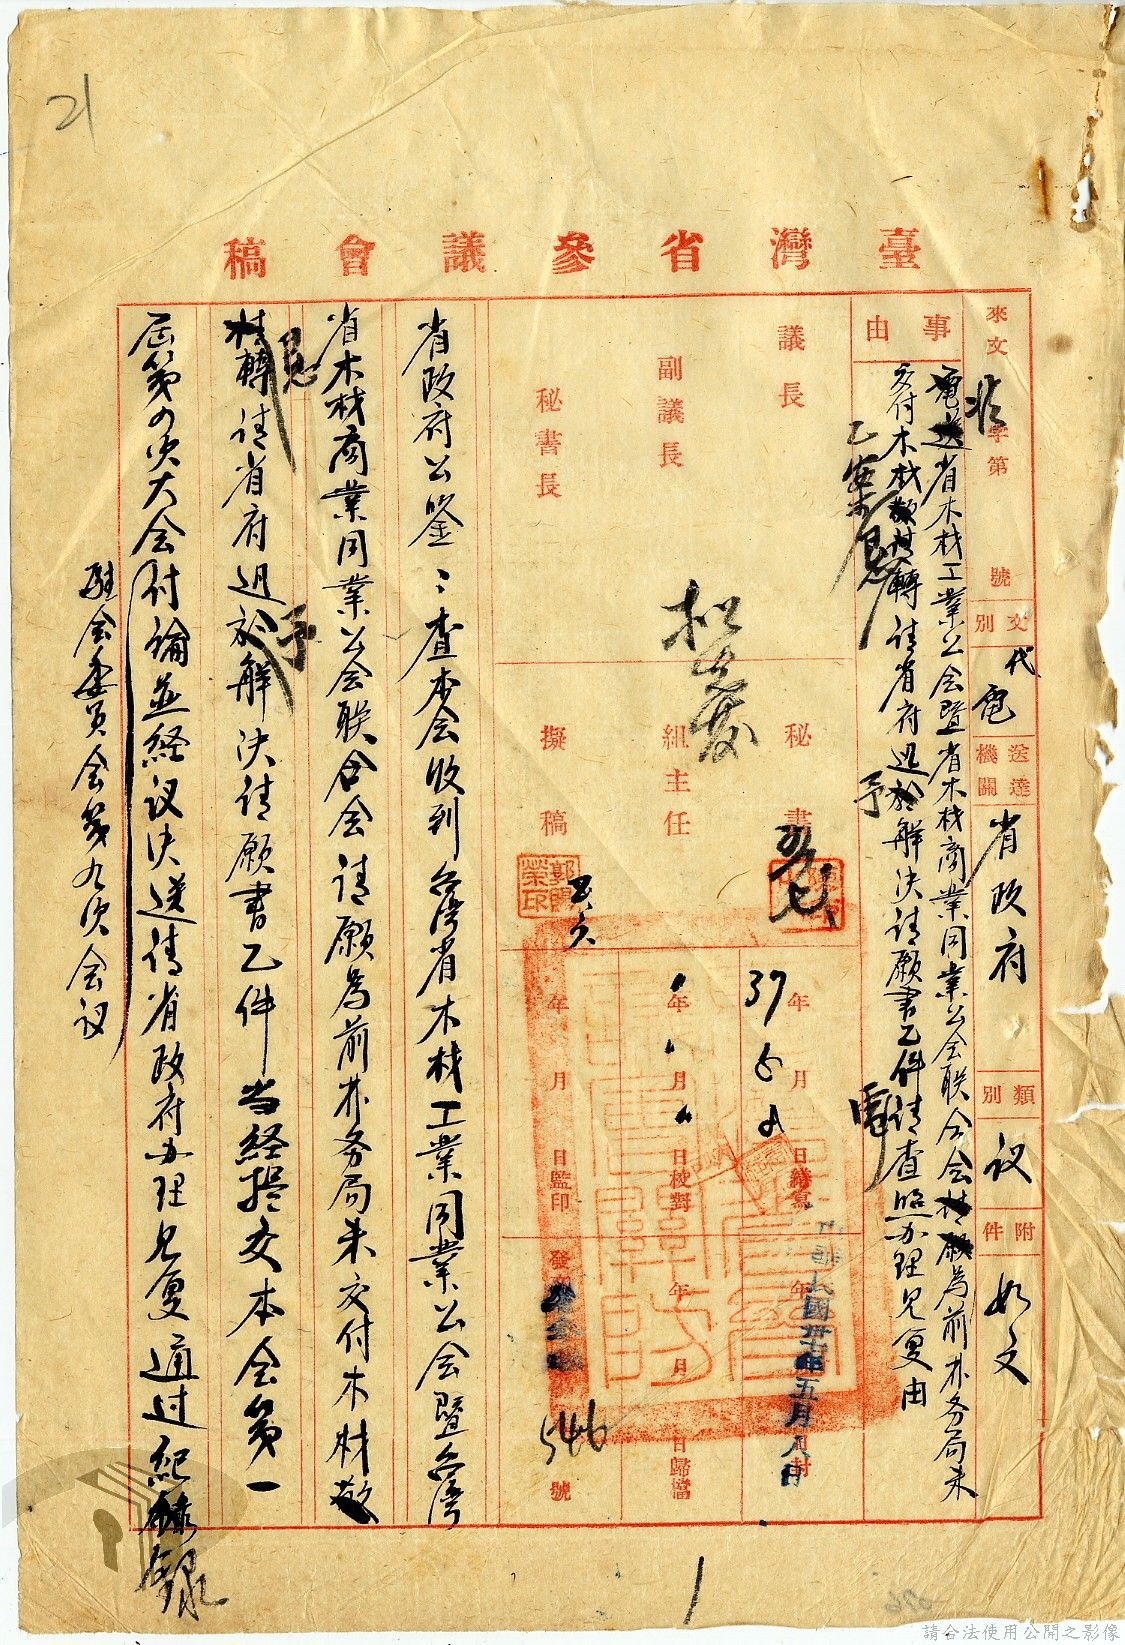 21
臺灣省參議會稿
來文 字第 號
文別 代電
送達機關 省政府
類別 议
附件 如文
事由
電送省木材工業公会暨省木材商業同業公会联合会 為前林务局未
交付木材 轉请省府迅 解决请願書乙件请查照办理见复由
乙案
予
議長
副議長
秘書長
秘書
組主任
擬稿
郭 榮印
37年5月8日繕寫
年 月 日校對
年 月 日監印
中華民國卅七年五月八日 封
年 月 日歸檔
發文 546號
省政府公鑒：查本会收到台湾省木材工業同業公会暨台湾
省木材商業同業公会联合会请願為前林务局未交付木材
轉请省府迅 予解决请願書乙件当经提交本会第一
屆第四次大会讨論並经议决送请省政府办理见复通过紀錄
駐会委员会第九次会议
1
請合法使用公開之影像